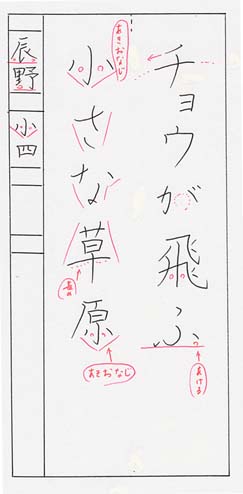 チョウが飛ぶ
小さな草原
辰野
小四
あきおなじ
長
あきおなじ
あける